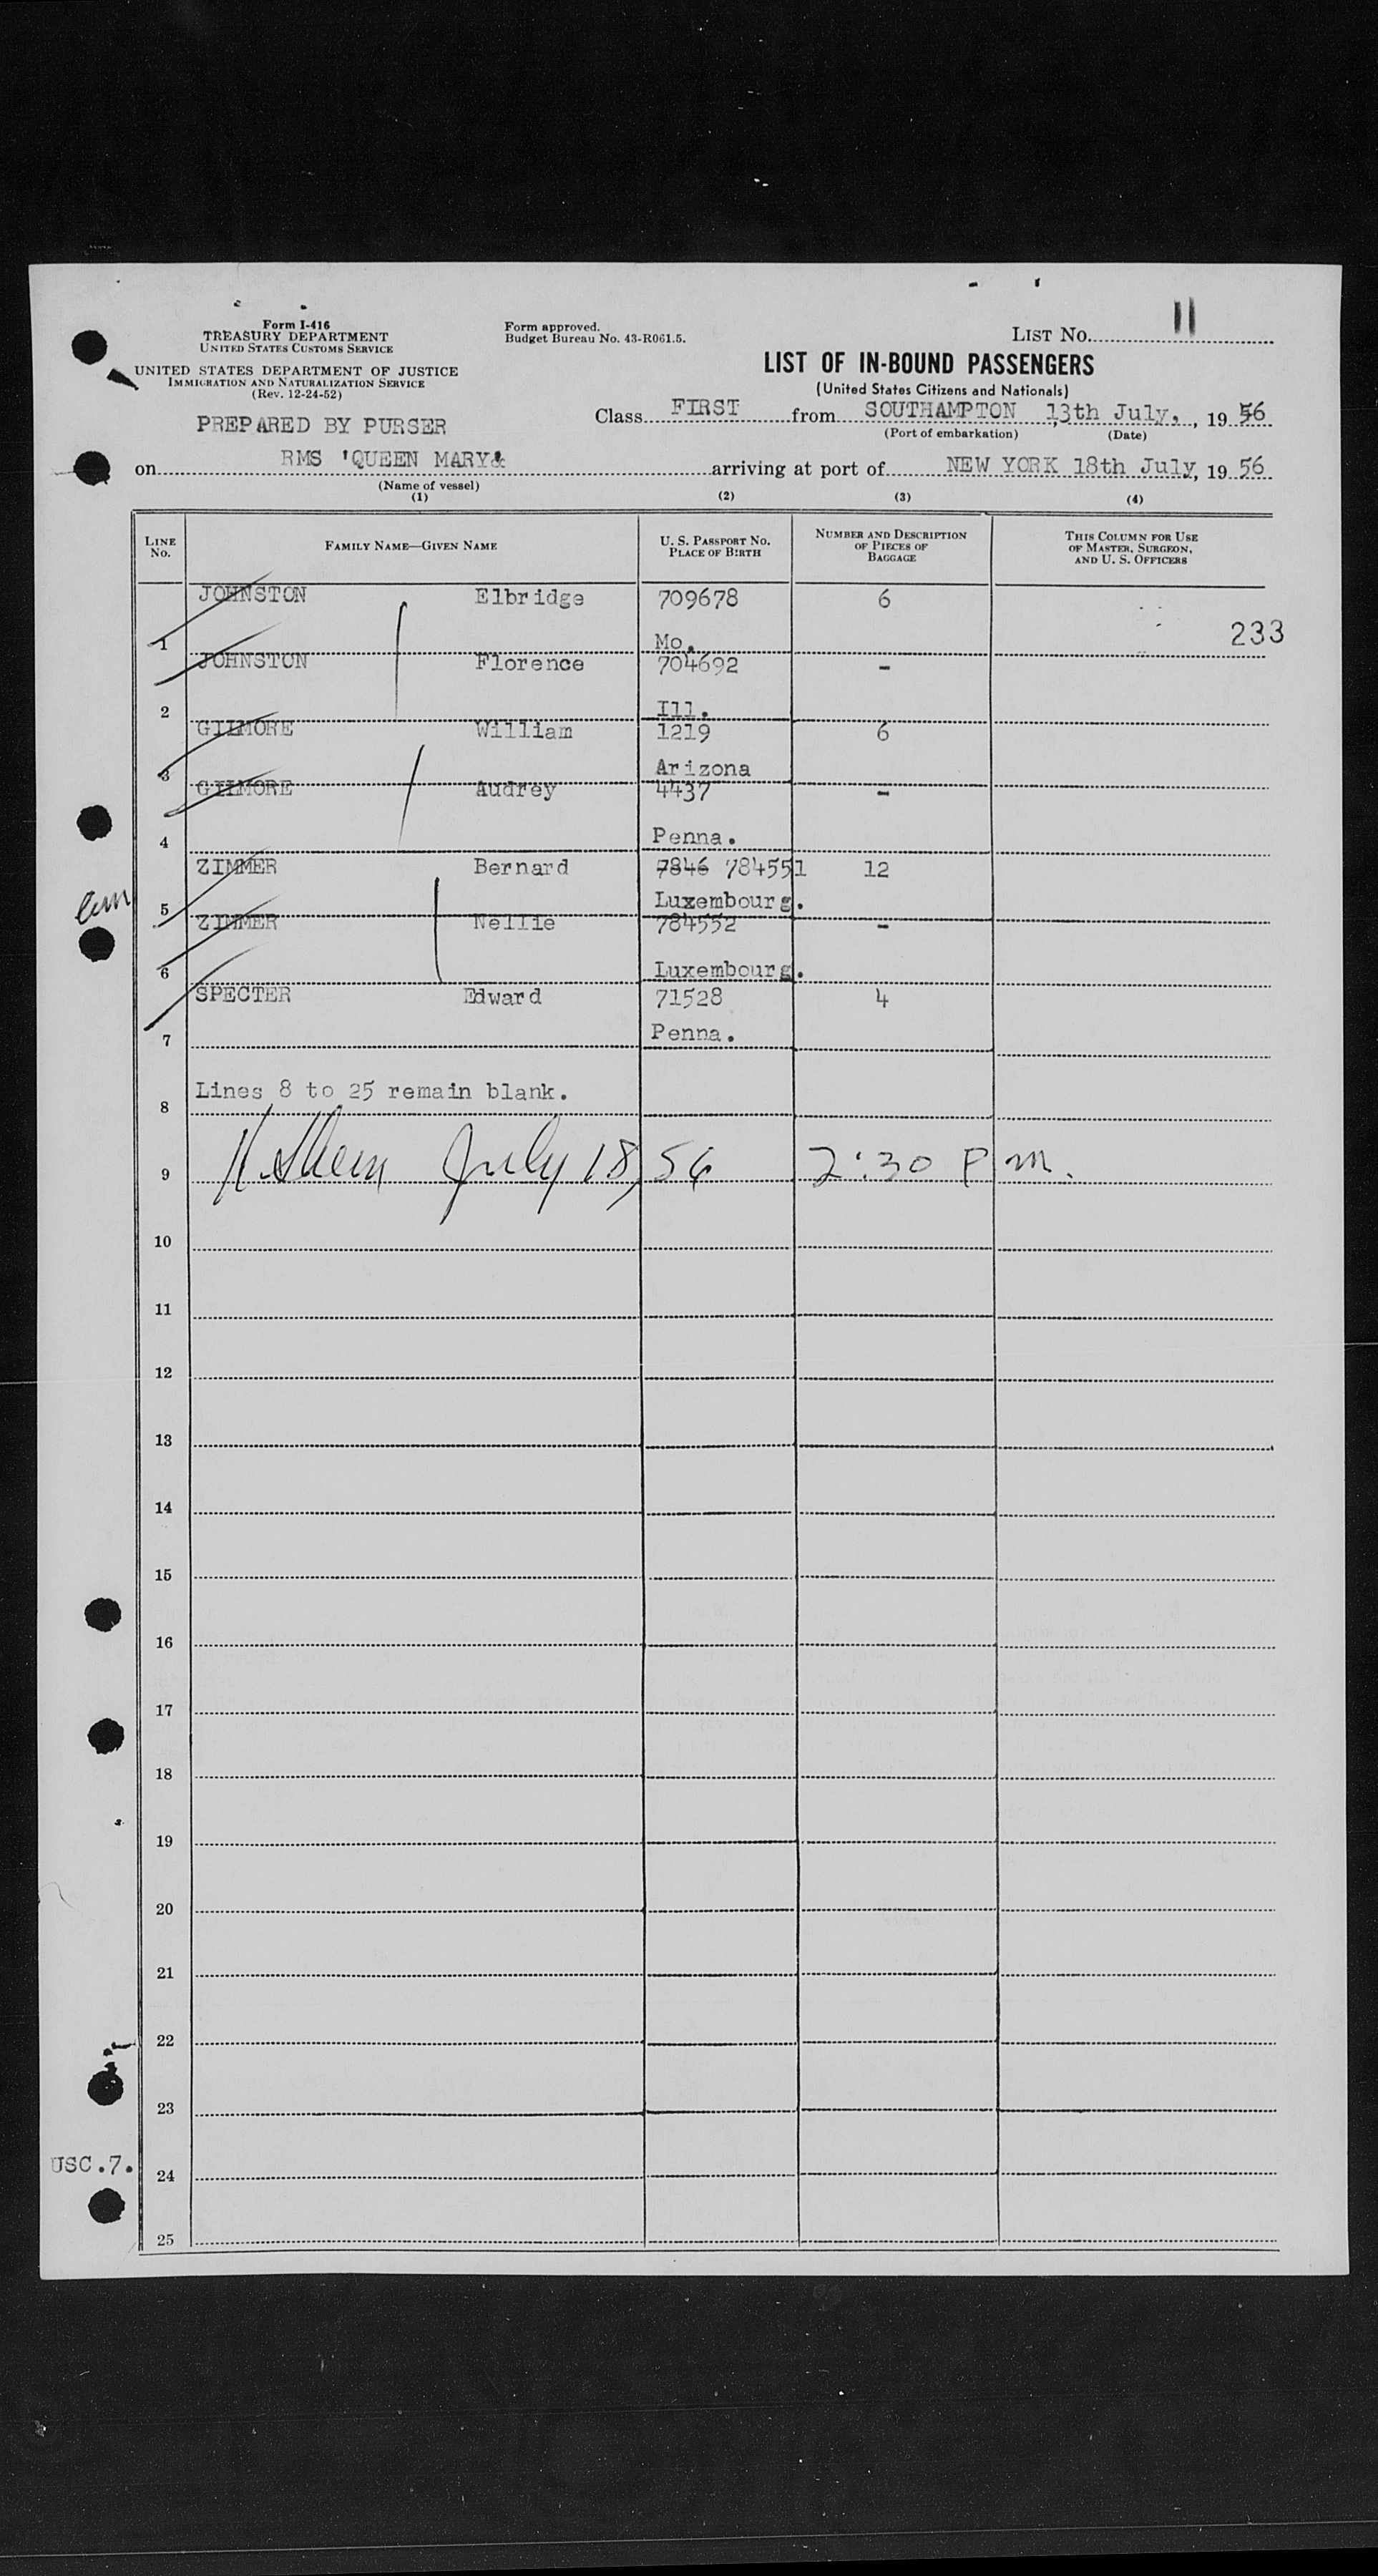 Form I-416
TREASURY DEPARTMENT
UNITED STATES CUSTOMS SERVICE
UNITED STATES DEPARTMENT OF JUSTICE
IMMIGRATION AND NATURALIZATION SERVICE
(Rev. 12-24-52)
PREPARED BY PURSER
Form approved.
Budget Bureau No. 43-R061.5.
LIST NO. 11
LIST OF IN-BOUND PASSENGERS
(United States Citizens and Nationals)
Class FIRST from SOUTHAMPTON, 13th July, , 19 56
(Port of embarkation) (Date)
on RMS 'QUEEN MARY& arriving at port of NEW YORK 18th July, 19 56
(Name of vessel)
(1) (2) (3) (4)
LINE NO. FAMILY NAME—GIVEN NAME U. S. PASSPORT NO. PLACE OF BIRTH NUMBER AND DESCRIPTION OF PIECES OF BAGGAGE THIS COLUMN FOR USE OF MASTER, SURGEON, AND U. S. OFFICERS
JOHNSTON Elbridge 709678 6
233
1 Mo.
JOHNSTON Florence 704692 -
2 Ill.
GILMORE William 1219 6
3 Arizona
GILMORE Audrey 4437 -
4 Penna.
ZIMMER Bernard 7846 784551 12
5 Luxembourg.
ZIMMER Nellie 784552 -
6 Luxembourg.
SPECTER Edward 71528 4
7 Penna.
Lines 8 to 25 remain blank.
8
9 July 18, 56 2:30 P.m.
10
11
12
13
14
15
16
17
18
19
20
21
22
23
USC.7. 24
25